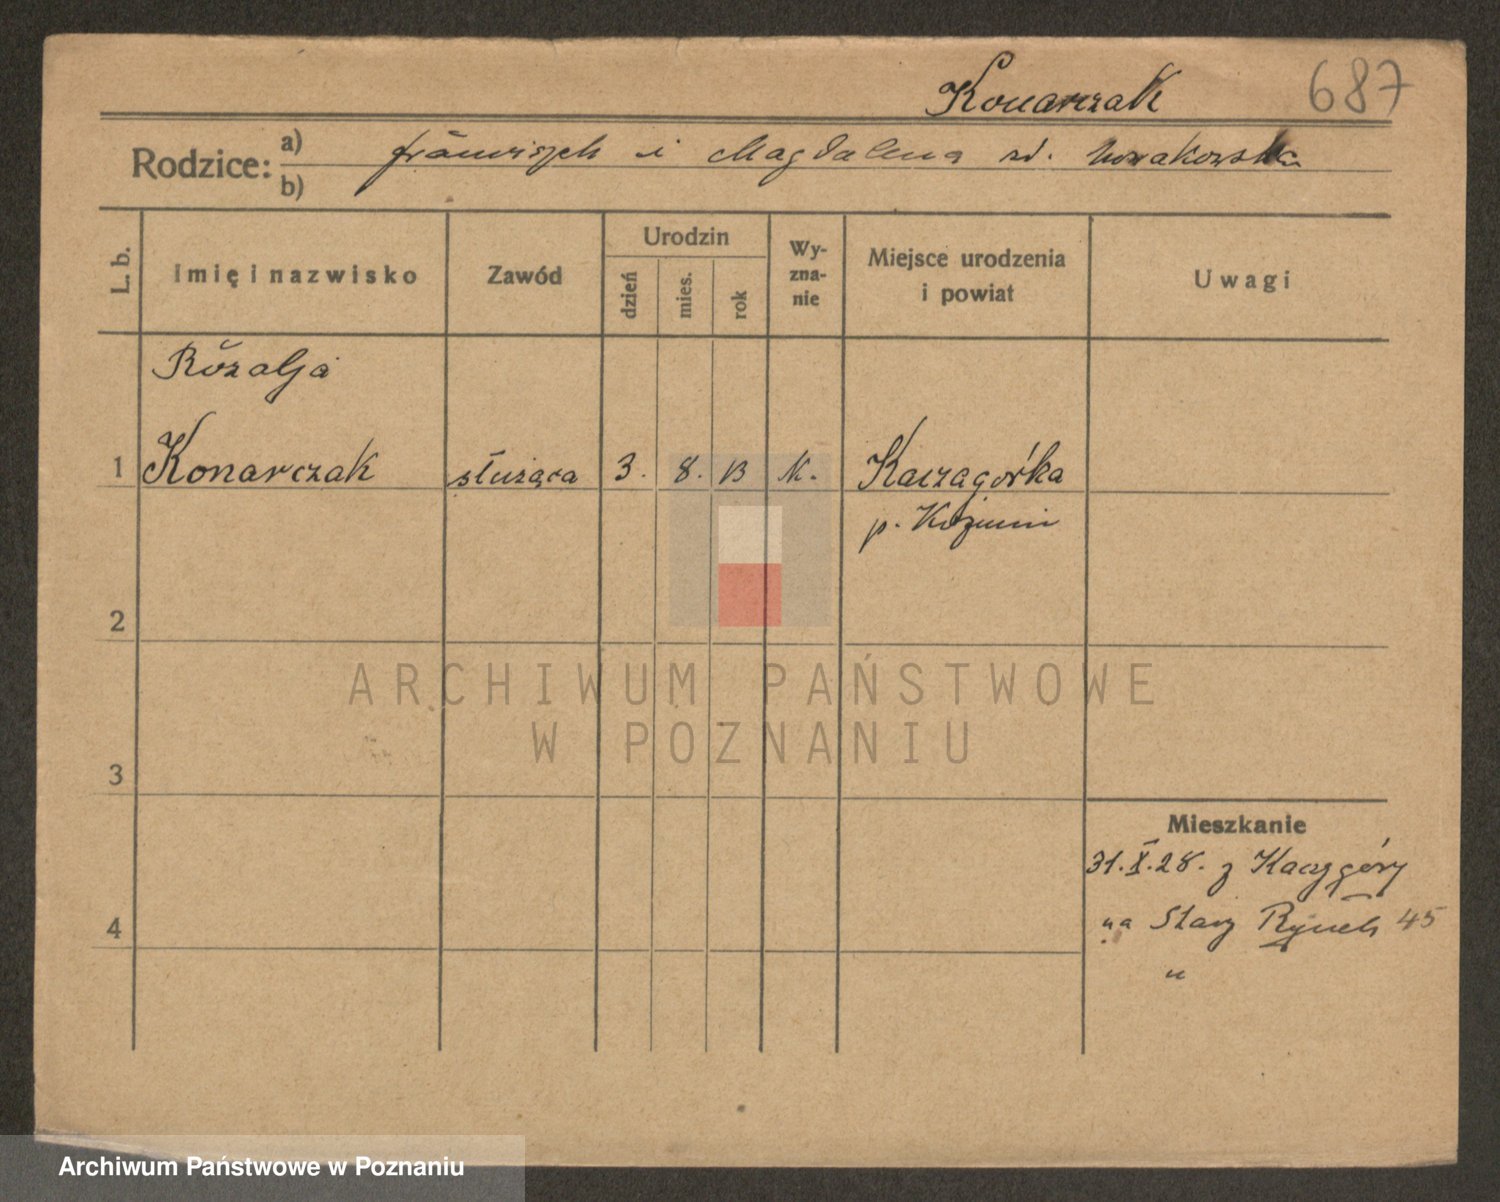 Konarczak
687
Rodzice: a) franciszek i Magdalena zd. Nowakowska
b)
L. b.
Imię i nazwisko
Zawód
Urodzin
dzień
mies.
rok
Wy-
zna-
nie
Miejsce urodzenia
i powiat
Uwagi
Rózalja
1 Konarczak służąca 3. 8. 13 K. Kaczagórka
p. Koźmin
2
3
4
Mieszkanie
31.X.28. z Kaczgóry
na Stary Rynek 45
"
ARCHIWUM PAŃSTWOWE
W POZNANIU
Archiwum Państwowe w Poznaniu